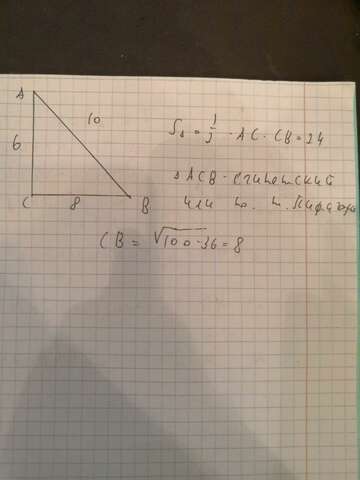 A
10
6
C
8
B
S△ = 1/2 · AC · CB = 24
△ ACB - египетский
или по. т. Пифагора
CB = √100-36 = 8